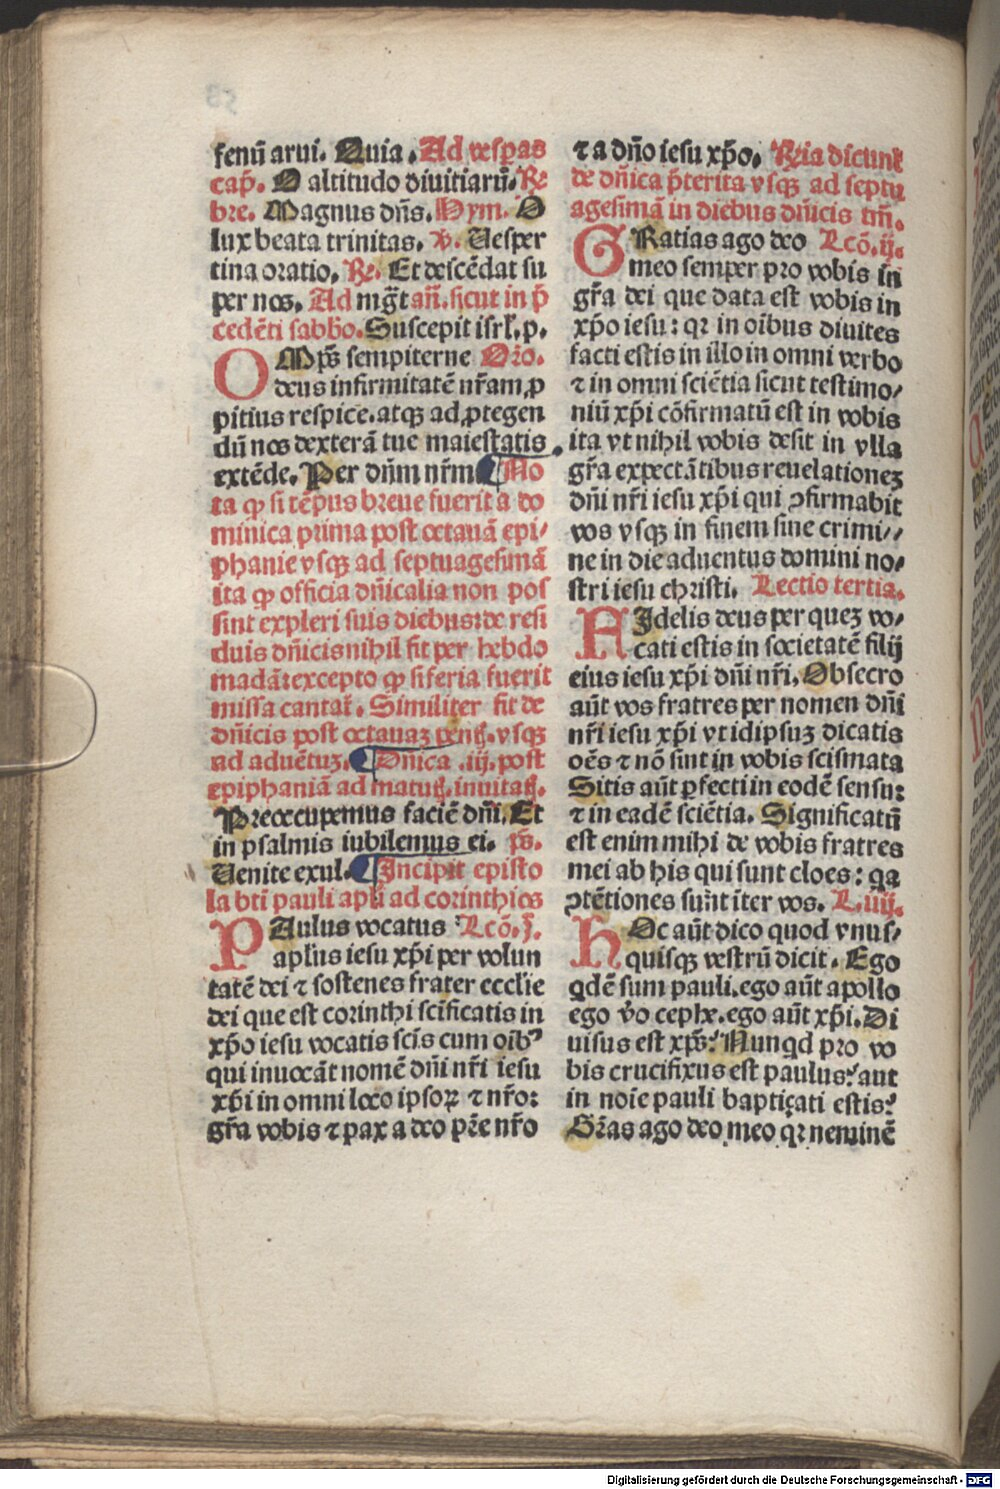 fenū arui. Quia. Ad vesꝑas
cap̄. O altitudo diuitiarū. Re
bre. Magnus dn̄s. Hym. O
lux beata trinitas. v̄. Vesper
tina oratio. Rꝭ. Et descēdat su
per nos. Ad mg̅t an̄. sicut in p̄
cedēti sabb̄o. Suscepit isrl̓. p.
OMp̄s sempiterne Oro.
deus infirmitatē nr̄am ꝓ
pitius respice. atqꝫ ad ꝓtegen
dū nos dexterā tue maiestatis
extēde. Per dn̄m nr̄m. ¶ No
ta ꝙ si tēpus breue fuerit a do
minica prima post octauā epi⸗
phanie vsqꝫ ad septuagesimā
ita ꝙ officia dn̄icalia non pos
sint expleri suis diebus: de resi
duis dn̄icis nihil fit per hebdo
madā: excepto ꝙ si feria fuerit
missa cantat̄. Similiter fit de
dn̄icis post octauaꝫ pentꝭ. vsqꝫ
ad aduētuꝫ. ¶ Dnica .iij. post
epiphaniā ad matutꝭ. inuitatꝭ.
Preoccupemus faciē dn̄i. Et
in psalmis iubilemus ei. ps̄.
Venite exul. ¶ Incipit episto
la bt̄i pauli apl̓i ad corinthios
PAulus vocatus Lcō. j.
apl̓us iesu xp̄i per volun
tatē dei ⁊ sostenes frater eccl̓ie
dei que est corinthi scificatis in
xp̄o iesu vocatis scīs cum oībꝰ
qui inuocāt nomē dn̄i nr̄i iesu
xp̄i in omni loco ipsoꝝ ⁊ nr̄o:
gr̄a vobis ⁊ pax a deo pr̄e nr̄o
⁊ a dn̄o iesu xp̄o. Rꝭia dicunt̄
de dn̄ica p̄terita vsqꝫ ad septu
agesimā in diebus dn̄icis tm̄.
GRatias ago deo Lcō. ij.
meo semper pro vobis in
gr̄a dei que data est vobis in
xp̄o iesu: qꝛ in oībus diuites
facti estis in illo in omni verbo
⁊ in omni sciētia sicut testimo⸗
niū xp̄i cōfirmatū est in vobis
ita vt nihil vobis desit in vlla
gr̄a expectātibus reuelationeꝫ
dn̄i nr̄i iesu xp̄i qui ꝯfirmabit
vos vsqꝫ in finem sine crimi⸗
ne in die aduentus domini no⸗
stri iesu christi. Lectio tertia.
FIdelis deus per queꝫ vo⸗
cati estis in societatē filij
eius iesu xp̄i dn̄i nr̄i. Obsecro
aūt vos fratres per nomen dn̄i
nr̄i iesu xp̄i vt idipsuꝫ dicatis
oēs ⁊ nō sint in vobis scismata
Sitis aūt ꝑfecti in eodē sensu:
⁊ in eadē sciētia. Significatū
est enim mihi de vobis fratres
mei ab his qui sunt cloes: qꝛ
ꝯtētiones sunt īter vos. L. iiij.
HOc aūt dico quod vnus⸗
quisqꝫ vestrū dicit. Ego
qdē sum pauli. ego aūt apollo
ego v̄o cephe. ego aūt xp̄i. Di
uisus est xp̄s? Nunqd pro vo
bis crucifixus est paulus? aut
in noīe pauli baptiçati estis?
Gr̄as ago deo meo qꝛ neminē
Digitalisierung gefördert durch die Deutsche Forschungsgemeinschaft - DFG